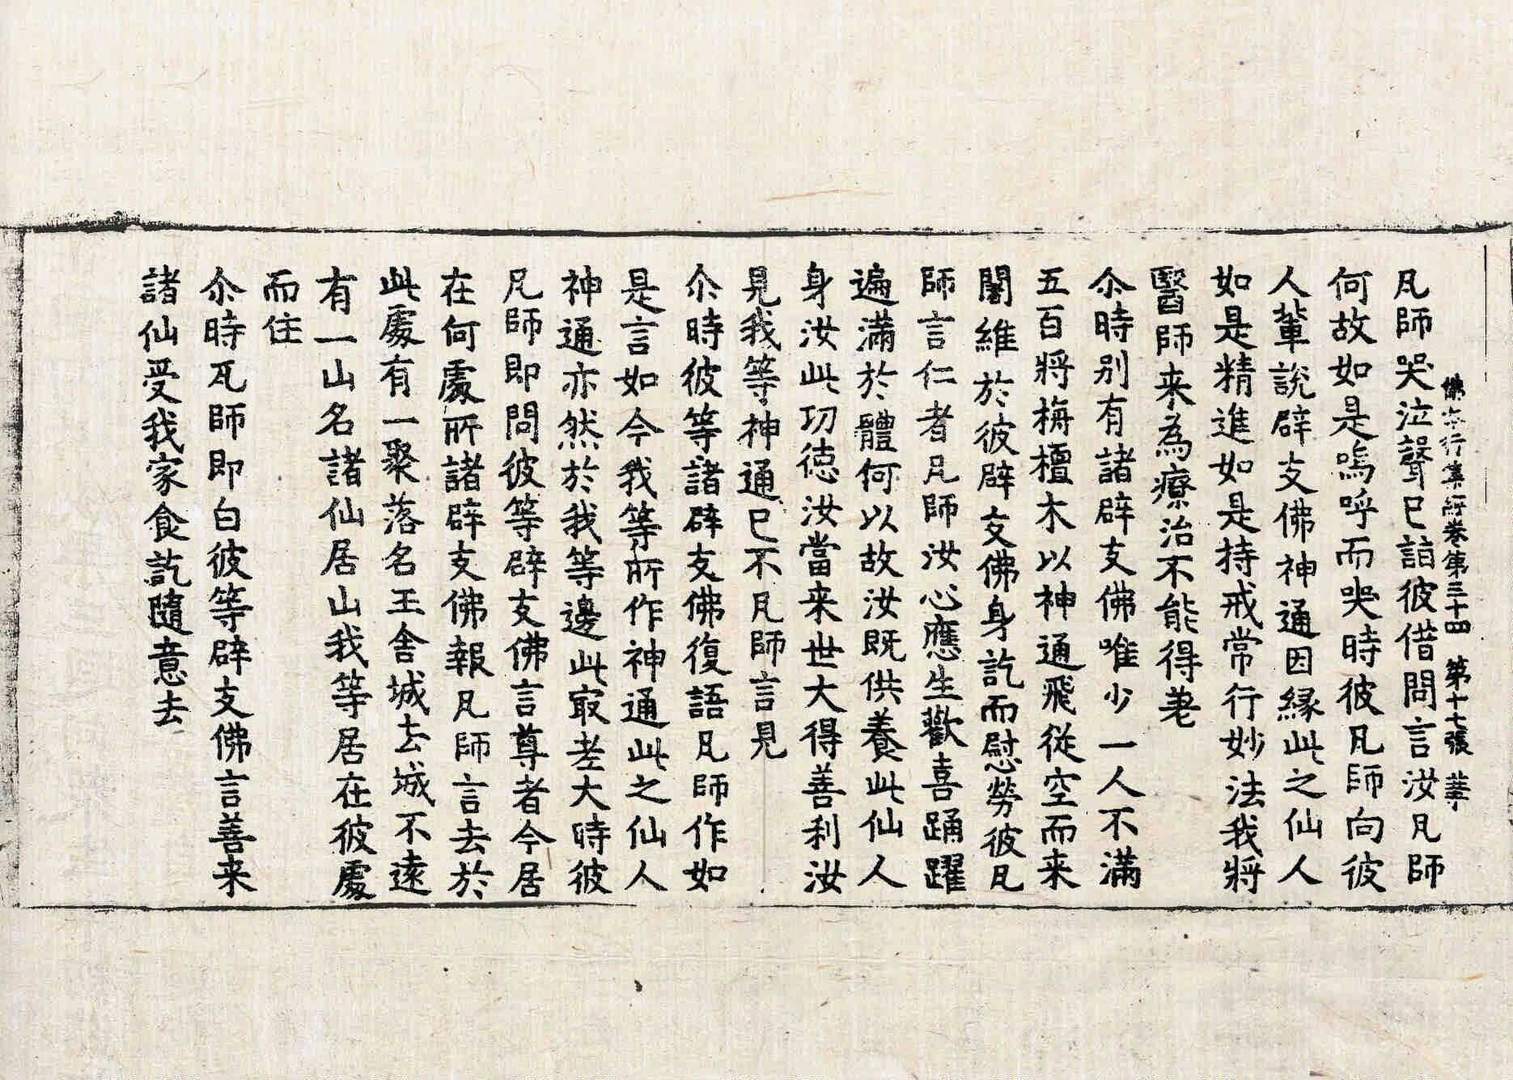 佛本行集經卷第三十四　第十七張　華
凡師哭泣聲已詣彼借問言汝凡師
何故如是嗚呼而哭時彼凡師向彼
人輩說辟支佛神通因縁此之仙人
如是精進如是持戒常行妙法我將
醫師来為療治不能得差
尒時別有諸辟支佛唯少一人不滿
五百將栴檀木以神通飛從空而来
闍維於彼辟支佛身訖而慰勞彼凡
師言仁者凡師汝心應生歡喜踊躍
遍滿於體何以故汝既供養此仙人
身汝此功徳汝當来世大得善利汝
見我等神通已不凡師言見
尒時彼等諸辟支佛復語凡師作如
是言如今我等所作神通此之仙人
神通亦然於我等邊此㝡老大時彼
凡師即問彼等辟支佛言尊者今居
在何處所諸辟支佛報凡師言去於
此處有一聚落名王舍城去城不遠
有一山名諸仙居山我等居在彼處
而住
尒時瓦師即白彼等辟支佛言善来
諸仙受我家食訖隨意去